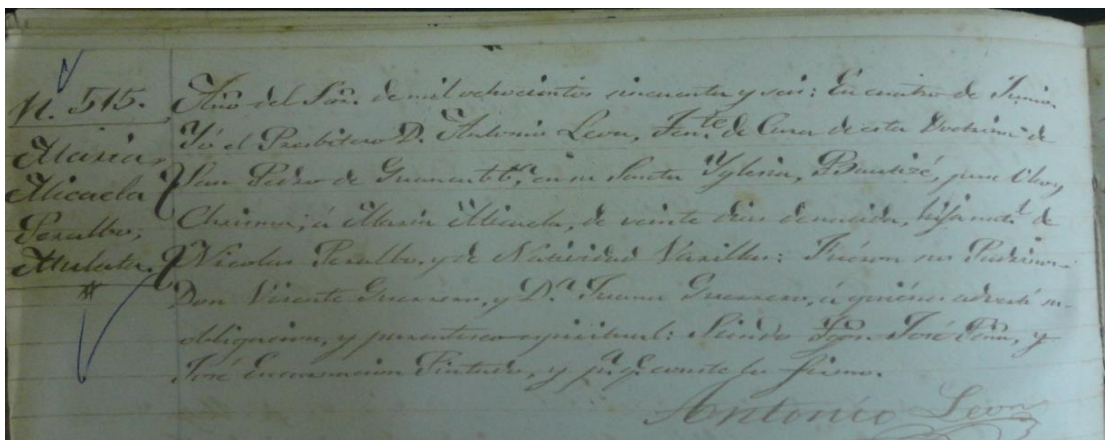 N. 515.
Maria
Micaela
Peralbo,
Mulata.
Año del Sor. de mil ochocientos cincuenta y seis: En cuatro de Junio.
Yó el Presbitero D. Antonio Leon, Ten.te de Cura de esta Doctrina de
San Pedro de en su Santa Yglesia, Bautizé, puse Oleo, y
Chrisma; á Maria Micaela, de veinte dias de nacida, hija nat.l de
Nicolas Peralbo, y de Natividad Varillas: Fuéron sus Padrinos
Don Vicente Guerrero, y D.a Juana Guerrero, á quiénes advertí su
obligacion, y parentesco espiritual: Siendo José Peña, y
José Encarnacion Pintado, y p.a q.e conste lo firmo.
Antonio Leon